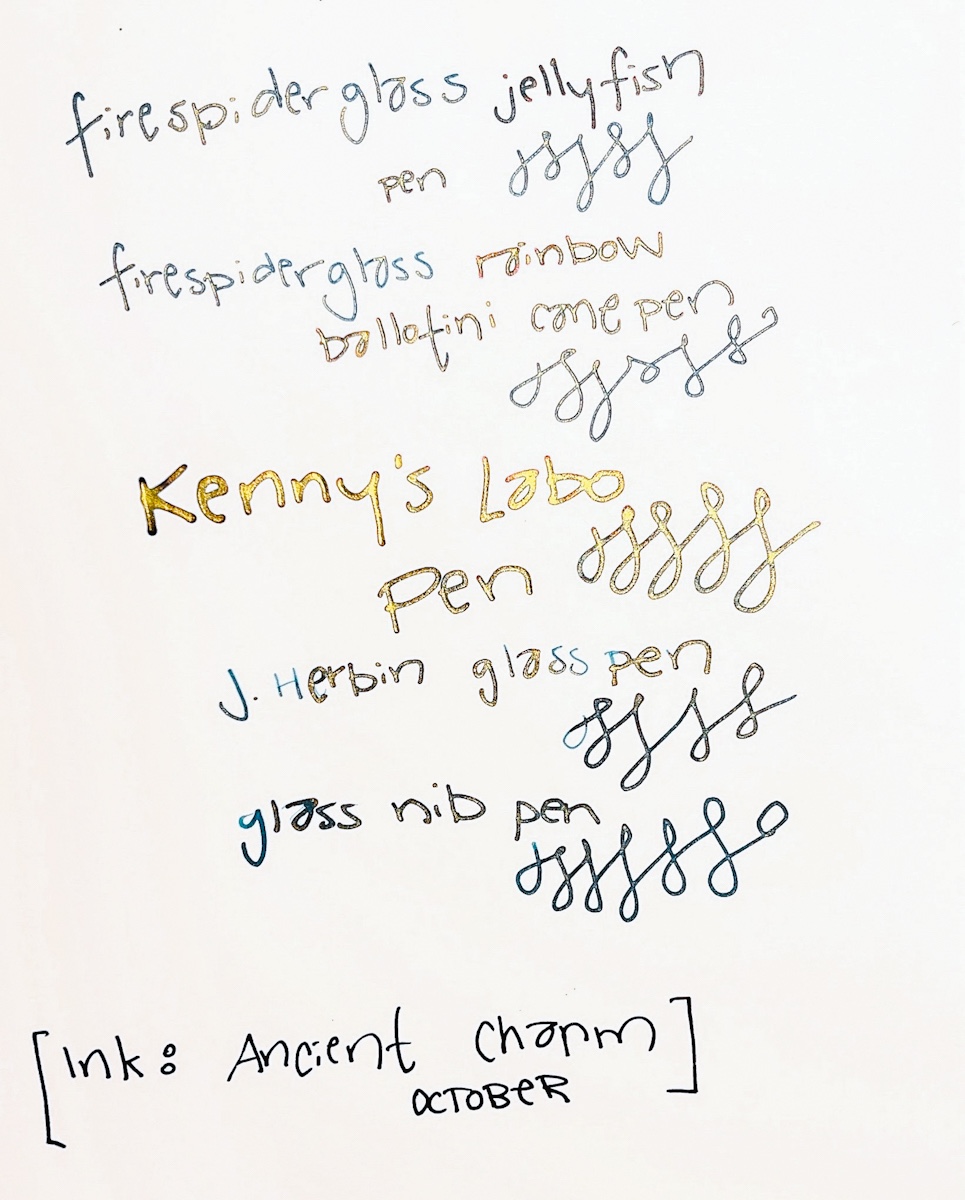 firespiderglass jellyfish
pen
firespiderglass rainbow
ballotini cane pen
Kenny's Labo
Pen
J. Herbin glass pen
glass nib pen
[Ink: Ancient Charm]
OCTOBER